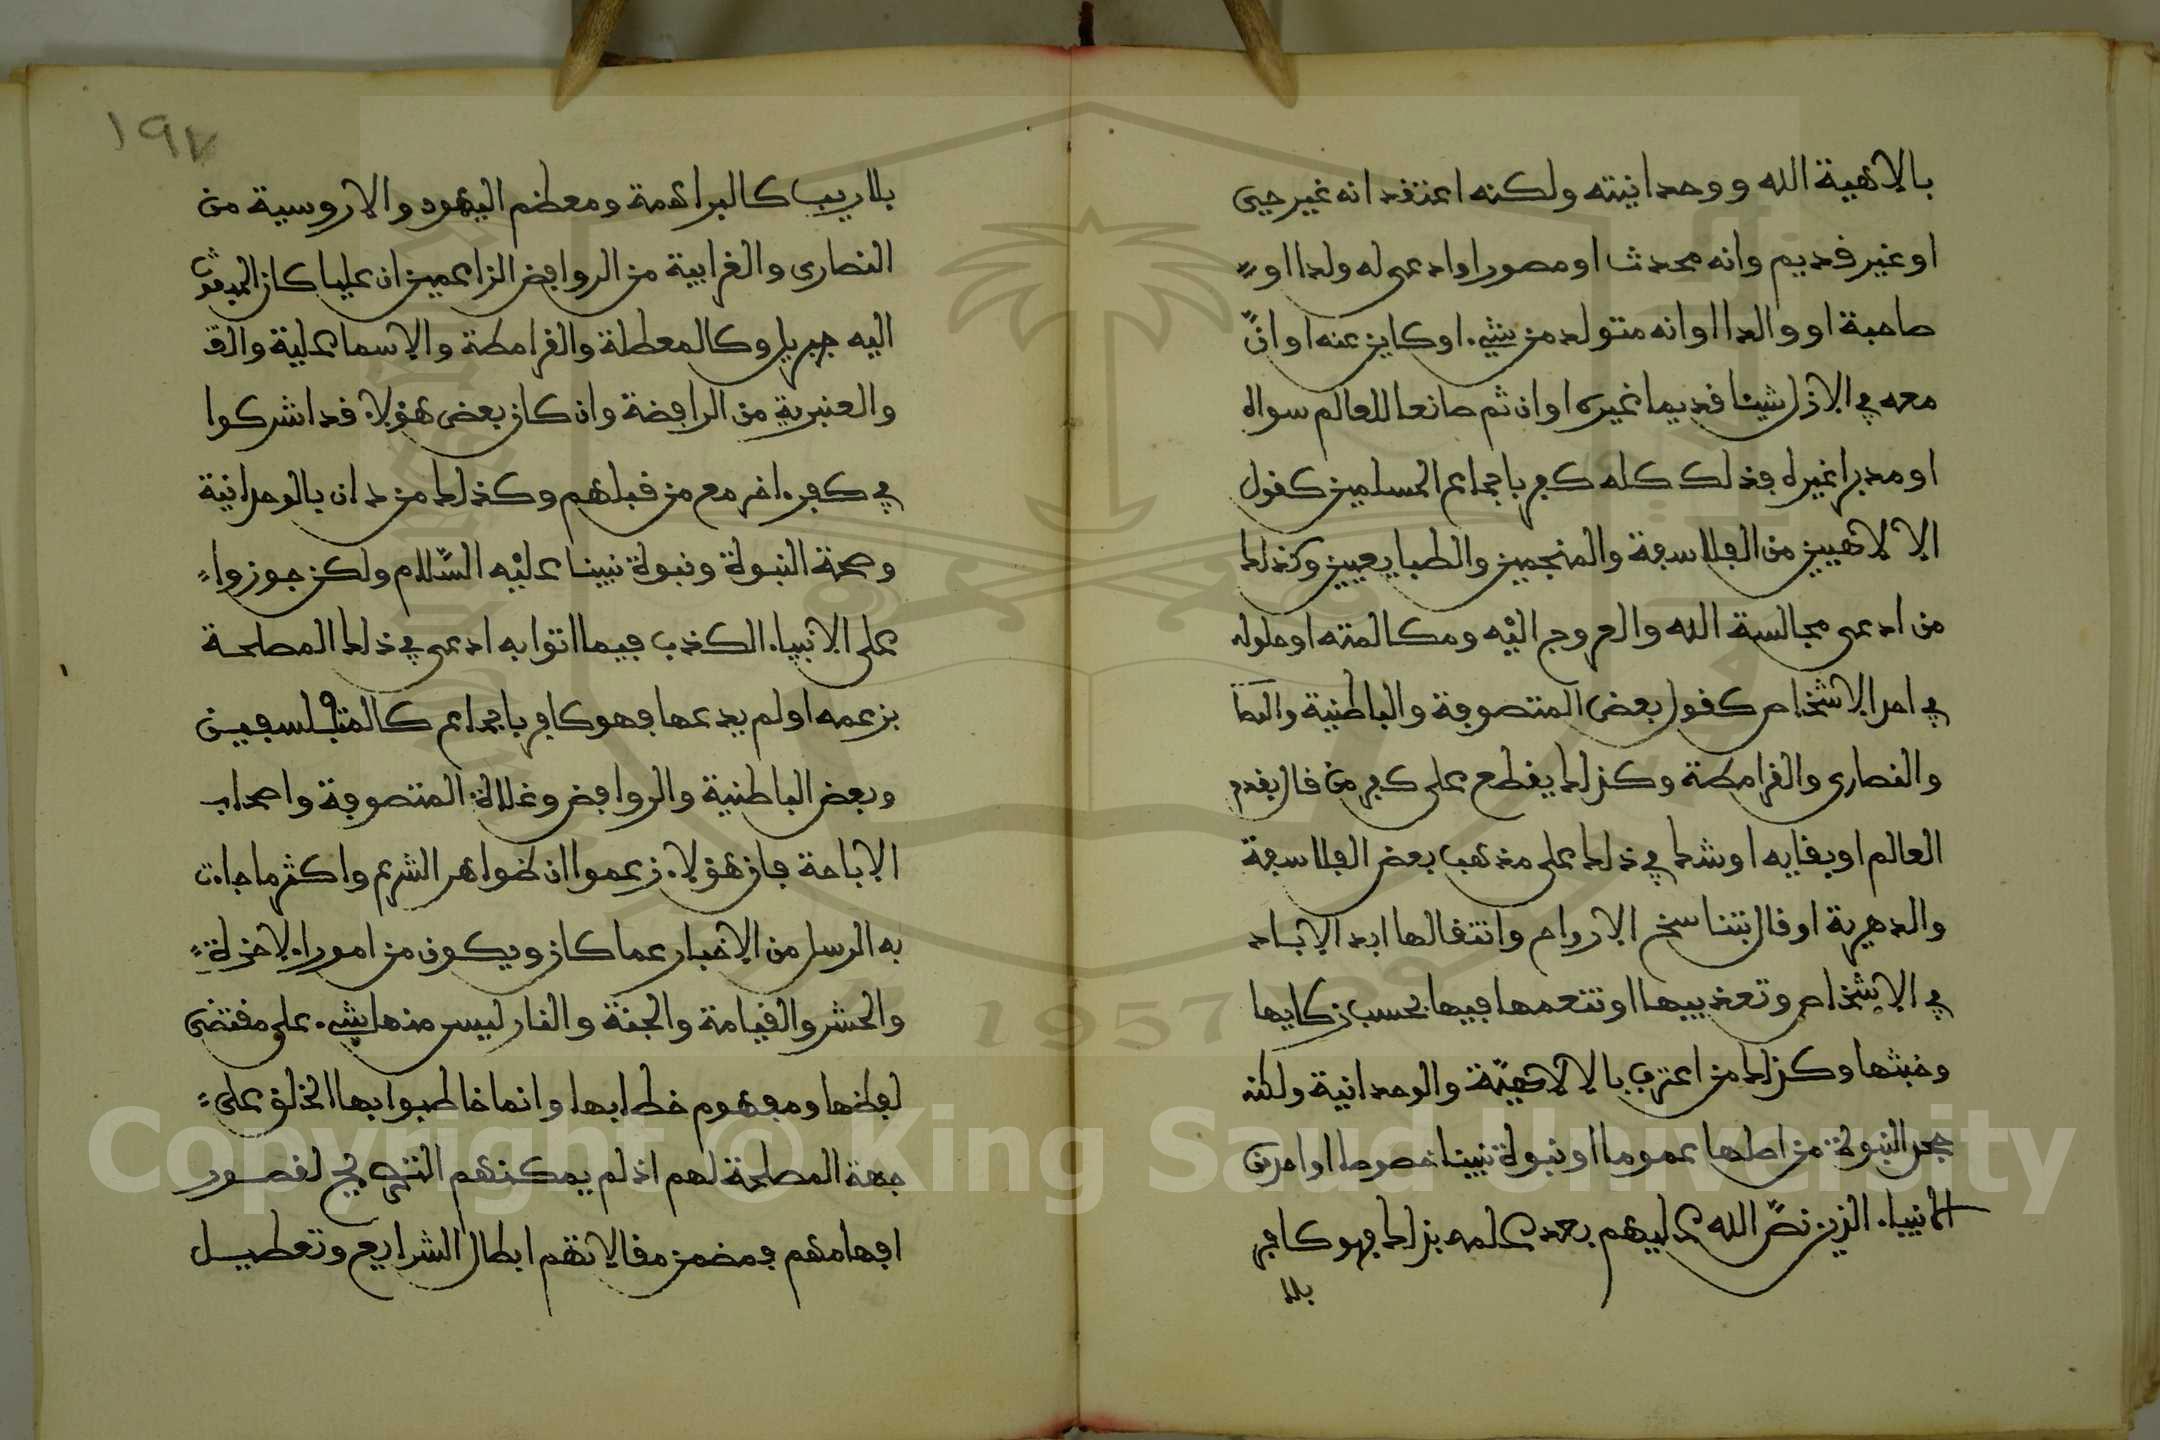 بالالاهية الله ووحدانيته ولكنه اعتقد انه غير حيى
او غير قديم وانه محدث او مصور او ادعى له ولدا او
صاحبة او والدا او انه متولد من شيء او كاين عنه او ان
معه في الازل شيئا قديما غيره او ان ثم صانعا للعالم سواه
او مدبرا غيره فذلك كله كفر باجماع المسلمين كقول
الالاهيين من الفلاسفة والمنجمين والطبايعيين وكذلك
من ادعى مجالسة الله والعروج اليه ومكالمته او حلوله
في احد الاشخاص كقول بعض المتصوفة والباطنية
والنصارى والقرامطة وكذلك يقطع على كفر من قال بقدم
العالم او بقايه او شك في ذلك على مذهب بعض الفلاسفة
والدهرية او قال بتناسخ الارواح وانتقالها ابد الاباد
في الاشخاص وتعذيبها او تنعمها فيها بحسب زكايها
وخبثها وكذلك من اعترف بالالاهية والوحدانية ولكنه
جحد النبوة من اصلها عموما او نبوة نبينا خصوصا او احد من
الانبياء الذين نص الله عليهم بعد علمه بذلك فهو كافر
بلا
١٩٧
بلا ريب كالبراهمة ومعظم اليهود والاروسية من
النصارى والغرابية من الروافض الزاعمين ان عليا كان المبعوث
اليه جبريل وكالمعطلة والقرامطة والاسماعلية
والعنبرية من الرافضة وان كان بعض هؤلاء قد اشركوا
في كفر اخر مع من قبلهم وكذلك من دان بالوحدانية
وصحة النبوة ونبوة نبينا عليه السلام ولكن جوزوا
على الانبياء الكذب فيما اتوا به ادعى في ذلك المصلحة
بزعمه او لم يدعها فهو كافر باجماع كالمتفلسفين
وبعض الباطنية والروافض وغلاة المتصوفة واصحاب
الاباحة فان هؤلاء زعموا ان ظواهر الشرع واكثر ما جاءت
به الرسل من الاخبار عما كان ويكون من امور الاخرة
والحشر والقيامة والجنة والنار ليس منها شيء على مقتضى
لفظها ومفهوم خطابها وانما خاطبوا بها الخلق على
جهة المصلحة لهم اذ لم يمكنهم التصريح لقصور
افهامهم فمضمن مقالاتهم ابطال الشرايع وتعطيل
Copyright © King Saud University
1957